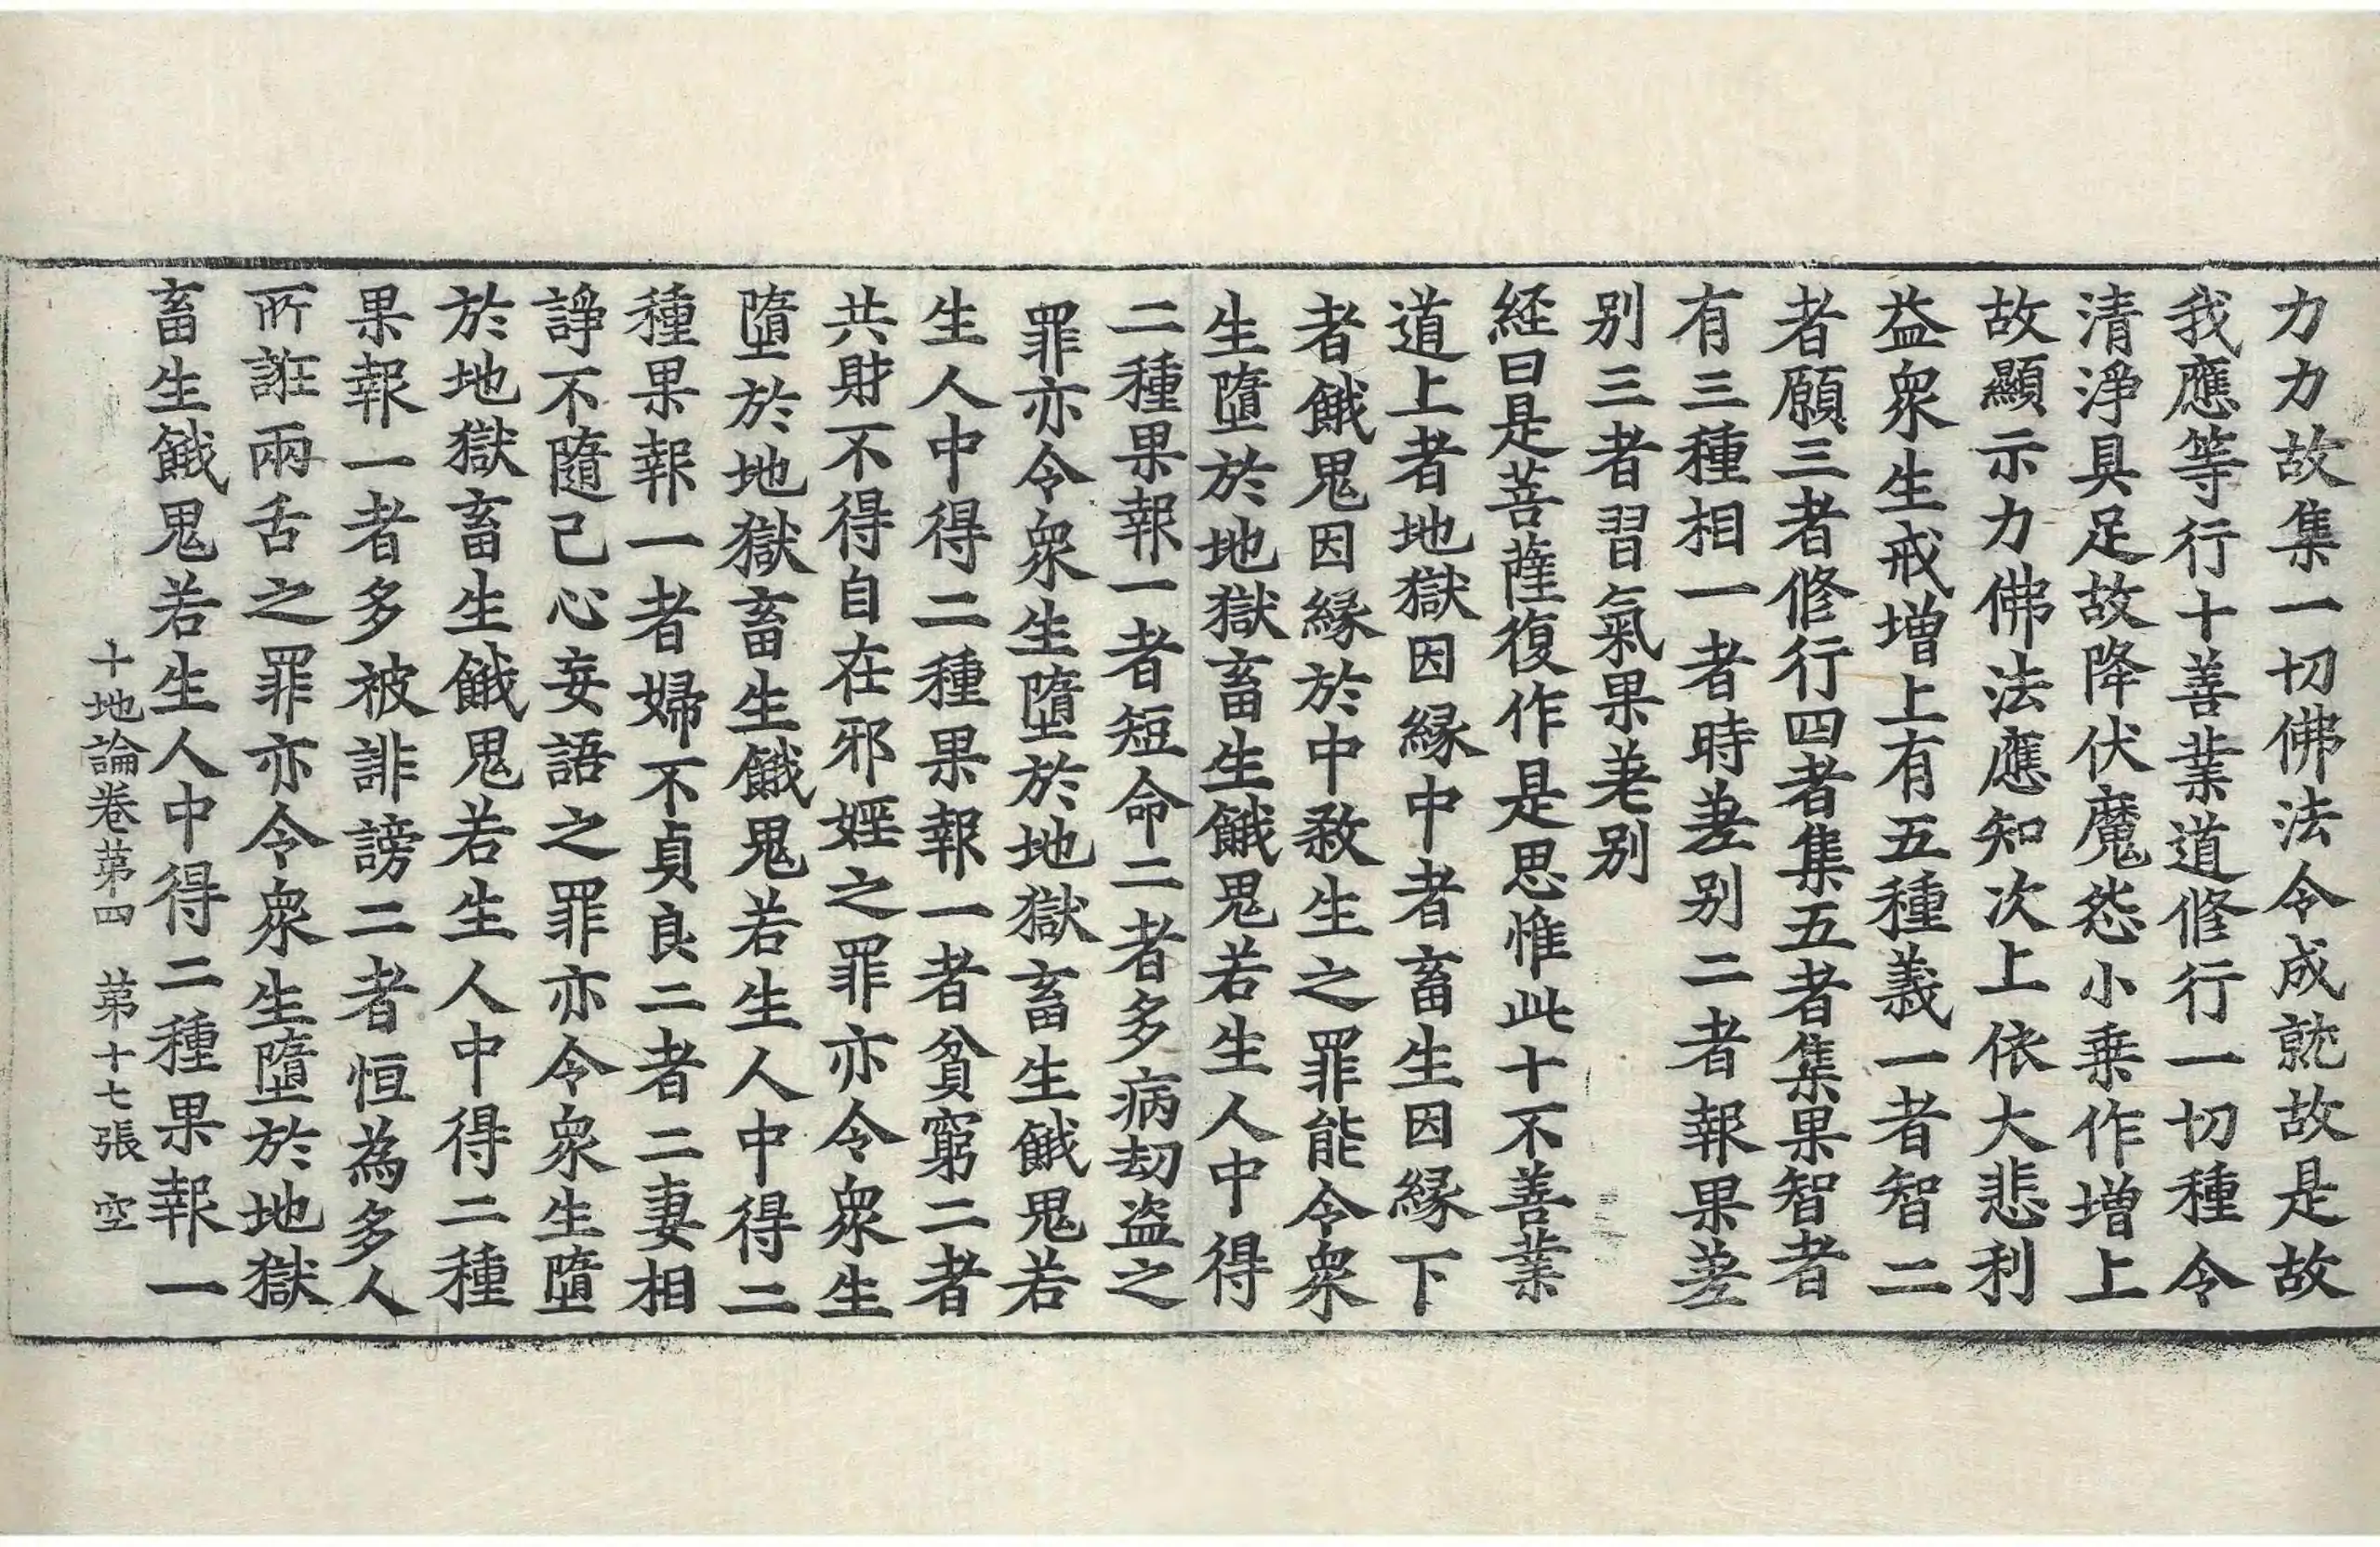 力力故集一切佛法令成就故是故
我應等行十善業道修行一切種令
清淨具足故降伏魔怨小乗作增上
故顯示力佛法應知次上依大悲利
益衆生戒增上有五種義一者智二
者願三者修行四者集五者集果智者
有三種相一者時差别二者報果差
别三者習氣果差别
経曰是菩薩復作是思惟此十不善業
道上者地獄因縁中者畜生因縁下
者餓鬼因縁於中敎生之罪能令衆
生墮於地獄畜生餓鬼若生人中得
二種果報一者短命二者多病刧盗之
罪亦令衆生墮於地獄畜生餓鬼若
生人中得二種果報一者貧窮二者
共財不得自在邪婬之罪亦令衆生
墮於地獄畜生餓鬼若生人中得二
種果報一者婦不貞良二者二妻相
諍不隨己心妄語之罪亦令衆生墮
於地獄畜生餓鬼若生人中得二種
果報一者多被誹謗二者恒為多人
所誑兩舌之罪亦令衆生墮於地獄
畜生餓鬼若生人中得二種果報一
十地論卷苐四　苐十七張　空